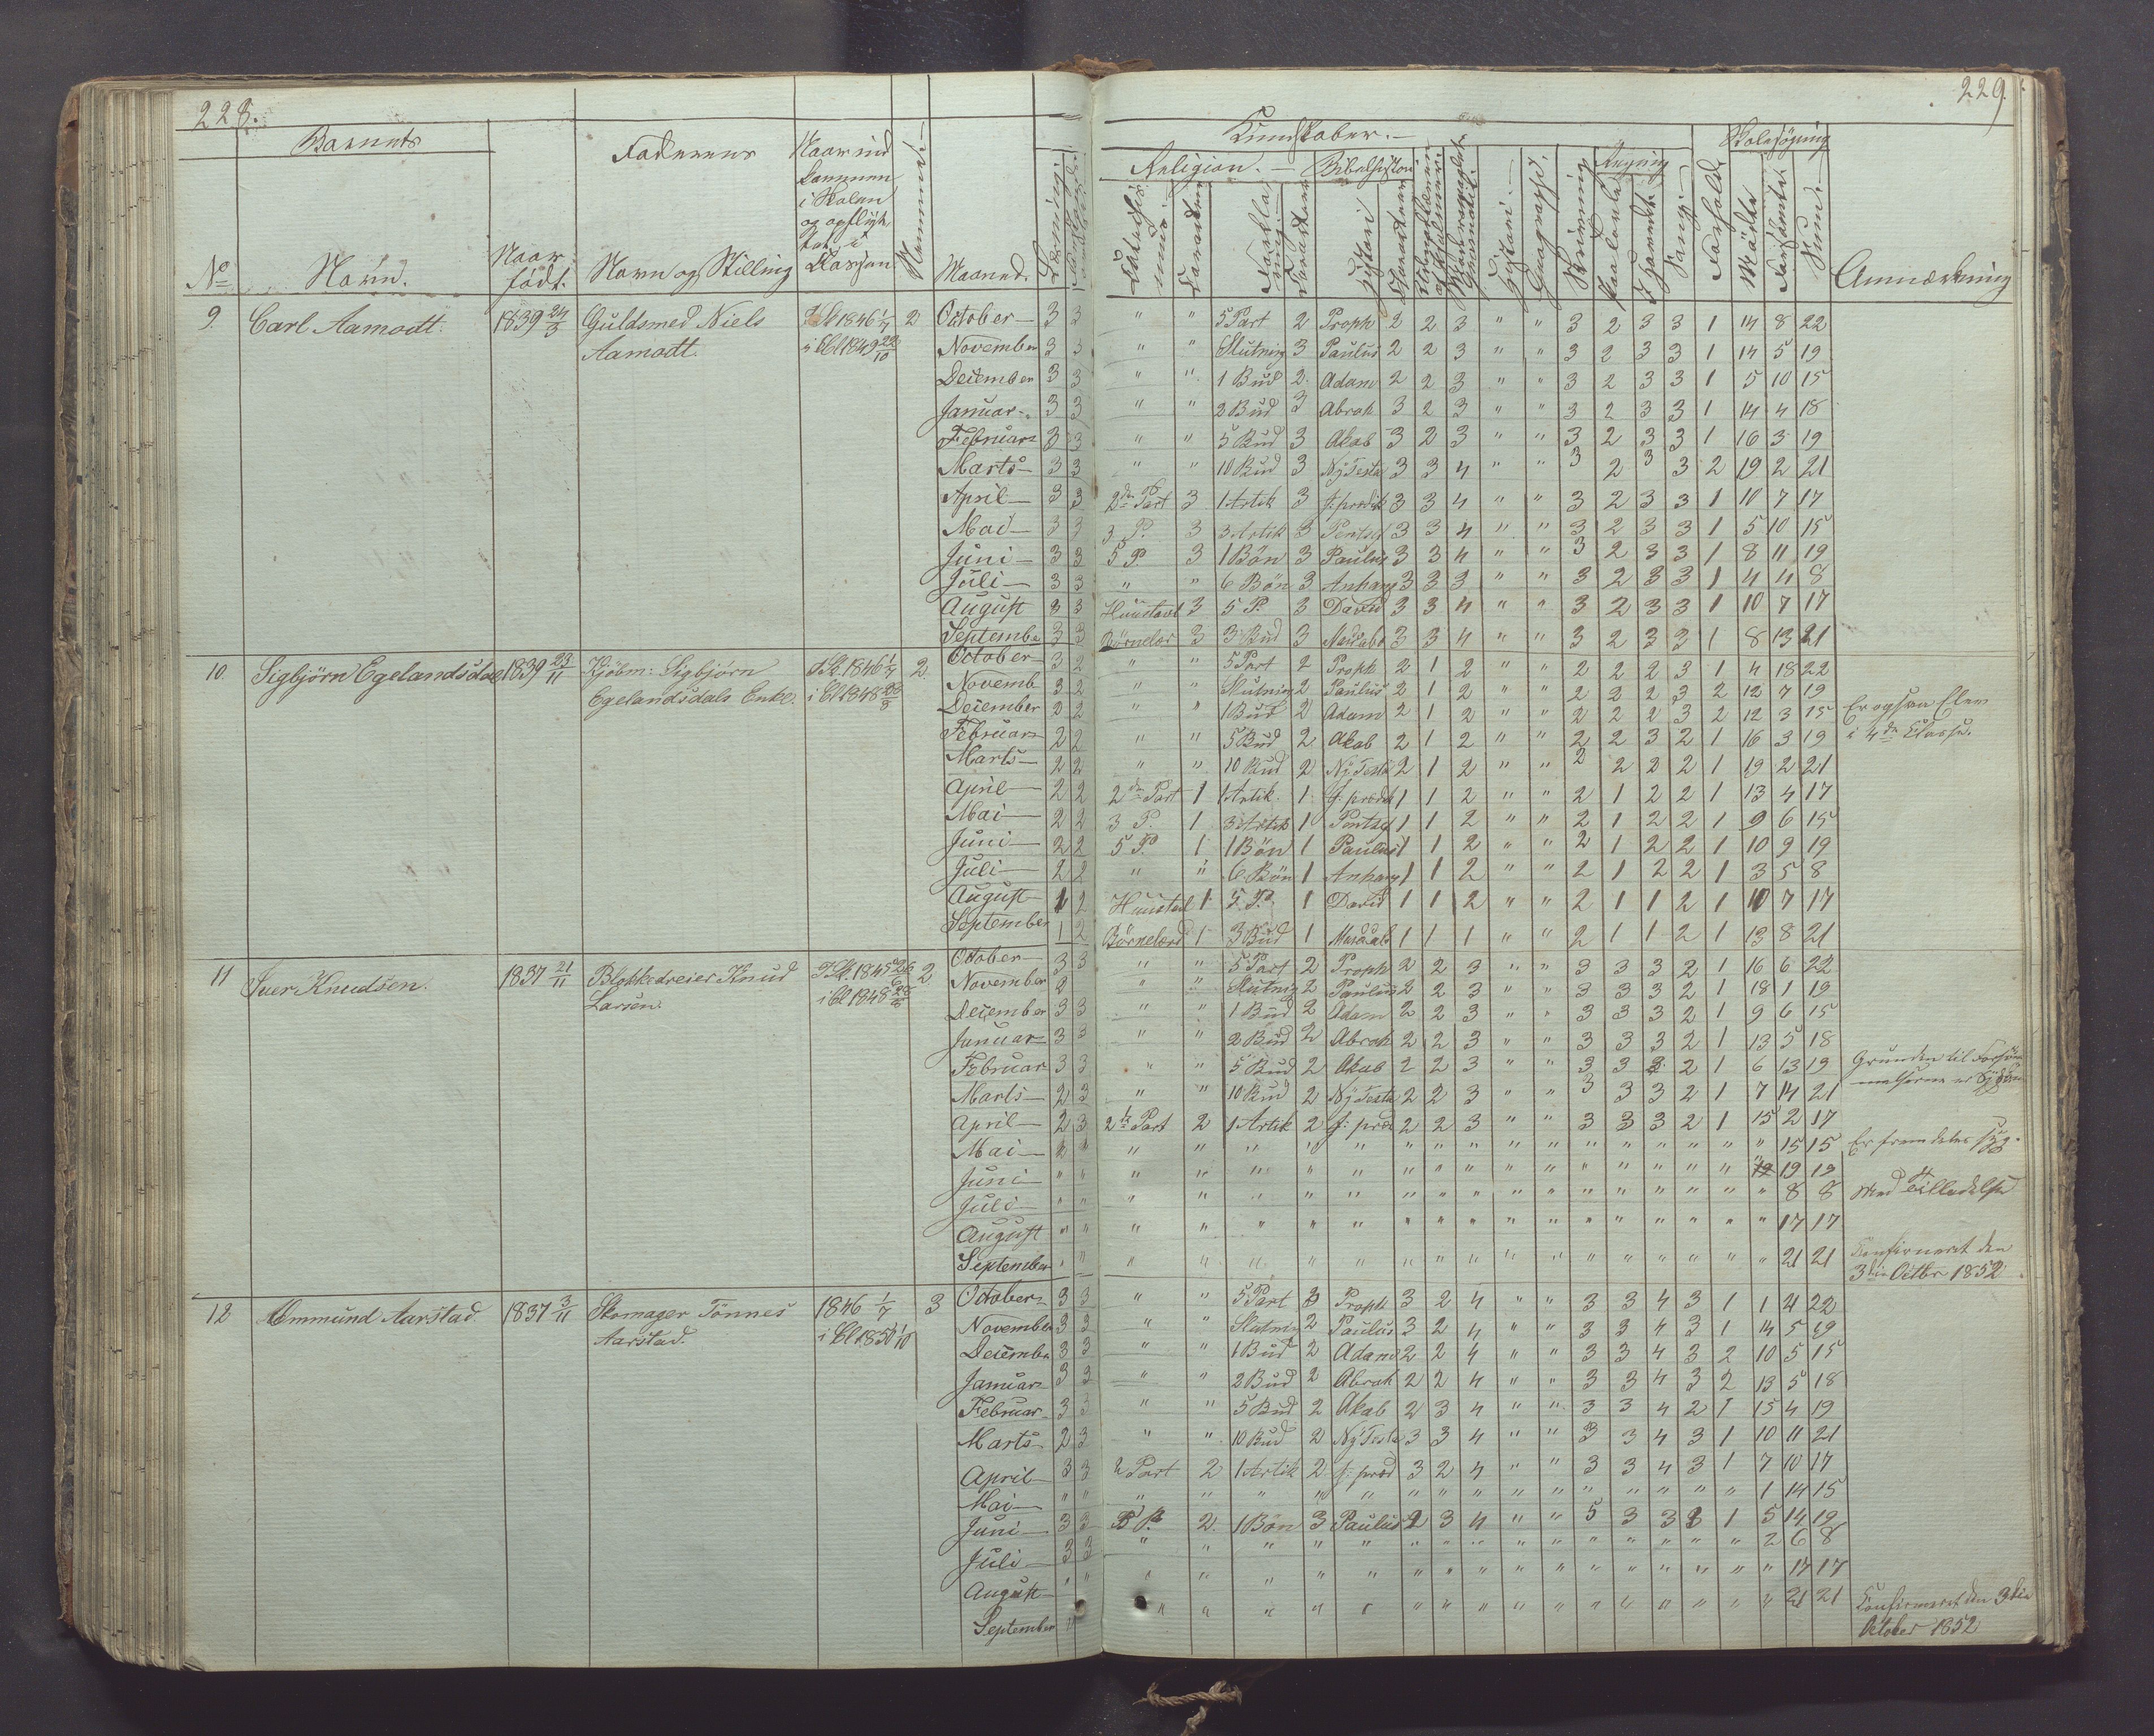 228.
229.
Barnets
Faderens
Naar ind
kommen
i Skolen
og opflyt
tet i
Klassen
Nummer
Kundskaber.
Religion. Bibelhistori
Regning
Skolesøgning
No Navn. Naar født. Navn og Stilling Maaned. Læsning Historie Geographi. Skrivning Sang Forhold Mödte Forsömte Sum Anmærkning
9. Carl Aamodt. 1839 24/3 Guldsmed Niels I Sk 1846 1/7 2 October 3 3 " " 5 Part 2 Proph 2 2 3 " " 3 2 3 3 1 14 8 22
Aamodt. i Cl 1849 22/10 November 3 3 " " Slutning 3 Paulus 2 2 3 " " 3 2 3 3 1 14 5 19
December 3 3 " " 1 Bud 2 Adam 2 2 3 " " 3 2 3 3 1 5 10 15
Januar 3 3 " " 2 Bud 3 Abrah 3 2 3 " " 3 2 3 3 1 14 4 18
Februar 3 3 " " 5 Bud 3 Akab 3 2 3 " " 3 2 3 3 1 16 3 19
Marts 3 3 " " 10 Bud 3 Ny Testa 3 3 4 " " 3 2 3 3 2 19 2 21
April 3 3 2den Part 3 1 Artik 3 J: prædik 3 3 4 " " 3 2 3 3 1 10 7 17
Mai 3 3 3 P. 3 3 Artik 3 Pentsf 3 3 4 " " 3 2 3 3 1 5 10 15
Juni 3 3 5 P. 3 1 Bön 3 Paulus 3 3 4 " " 3 2 3 3 1 8 11 19
Juli 3 3 " " 6 Bön 3 Anhang 3 3 3 " " 3 2 3 3 1 4 4 8
August 3 3 Huustavl 3 5 P. 3 David 3 3 4 " " 3 2 3 3 1 10 7 17
Septembe 3 3 Börnelær 3 3 Bud 3 3 3 4 " " 3 2 3 3 1 8 13 21
10. Sigbjörn Egelandsdal 1839 23/11 Kjöbm: Sigbjörn I Sk. 1846 1/7 2 October 3 2 " " 5 Part 2 Proph 2 1 2 " " 2 2 2 3 1 4 18 22
Egelandsdals Enke. i Cl 1848 28/8 Novemb 3 2 " " Slutning 2 Paulus 2 1 2 " " 2 2 2 3 2 12 7 19
December 2 2 " " 1 Bud 2 Adam 2 1 2 " " 2 2 2 3 2 12 3 15 Er ogsaa Elev
Februar 2 2 " " 5 Bud 2 Akab 2 1 2 " " 2 2 3 2 1 16 3 19 i 4de Classe.
Marts 2 2 " " 10 Bud 2 Ny Testa 2 1 2 " " 2 2 2 2 1 19 2 21
April 2 2 2den Part 1 1 Artik. 1 J: prædik 1 1 2 " " 2 1 2 2 1 13 4 17
Mai 2 2 3 P. 1 3 Artik 1 Pentsf 1 1 2 " " 2 1 2 2 1 9 6 15
Juni 2 2 5 P. 1 1 Bön 1 Paulus 1 1 2 " " 2 1 2 2 1 10 9 19
Juli 2 2 " " 6 Bön 1 Anhang 1 1 2 " " 2 1 2 2 1 3 5 8
August 1 2 Huustavl 1 5 P. 1 David 1 1 2 " " 2 1 1 2 1 10 7 17
September 1 2 Börnelærd 1 3 Bud 1 1 1 1 " " 2 1 1 2 1 13 8 21
11 Iver Knudsen. 1837 21/11 Blokkedreier Knud I Sk. 1845 26/6 2 October 3 3 " " 5 Part 2 Proph 2 2 3 " " 3 3 3 2 1 16 6 22
Larsen. i Cl 1848 28/8 November 2 " " Slutnig 2 Paulus 2 2 3 " " 3 3 3 2 1 18 1 19
December 3 3 " " 1 Bud 2 Adam 2 2 3 " " 3 3 3 2 1 9 6 15
Januar 3 3 " " 2 Bud 2 Abrah 2 2 3 " " 3 3 3 2 1 13 5 18
Februar 3 3 " " 5 Bud 2 Akab 2 2 3 " " 3 3 3 2 1 6 13 19 Grunden til Forsöm
Marts 2 3 " " 10 Bud 2 Ny Testa 2 2 3 " " 3 3 3 2 1 7 14 21 melserne er Sygdom
April 2 3 2de Part 2 1 Artik 2 J: præd 2 2 3 " " 3 3 3 2 1 15 2 17
Mai 2 " " " " " " " " " " " " " " " " " 15 15 Er fremdeles syg.
Juni " " " " " " " " " " " " " " " " " 19 19
Juli " " " " " " " " " " " " " " " " " " 8 8 Med Tilladelse
August " " " " " " " " " " " " " " " " " " 17 17
September " " " " " " " " " " " " " " " " " " 21 21 Confirmeret den
3die Octbr 1852
12 Ommund Aarstad. 1837 3/11 Skomager Tönnes 1846 1/7 3 October 3 3 " " 5 Part 3 Proph 3 2 4 " " 3 3 4 3 1 1 4 22
Aarstad. i Cl 1850 1/10 November 3 3 " " Slutning 2 Paulus 3 2 4 " " 3 3 4 3 1 14 5 19
Decembe 3 3 " " 1 Bud 2 Adam 2 2 4 " " 3 3 4 3 2 10 5 15
Januar 3 3 " " 2 Bud 2 Abrah 2 2 4 " " 3 3 4 3 2 13 5 18
Februar 3 3 " " 5 Bud 2 Akab 2 3 4 " " 3 3 4 2 1 15 4 19
Marts 2 3 " " 10 Bud 2 Ny Testa 3 3 4 " " 3 3 4 3 1 10 11 21
April 3 3 2 Part 2 1 Artik 2 J: præd 3 2 4 " " 3 3 4 3 1 7 10 17
Mai " " " " " " " " " " " " " " " " " 1 14 15
Juni 3 3 5 P. 2. 1 Bön 3 Paulus 2 3 4 " " 5 3 3 1 5 14 19
Juli 3 3 " " " " " " " " " " " " " " " 2 6 8
August " " " " " " " " " " " " " " " " " " 17 17
September " " " " " " " " " " " " " " " " " 21 21 Confirmeret den 3die
October 1852